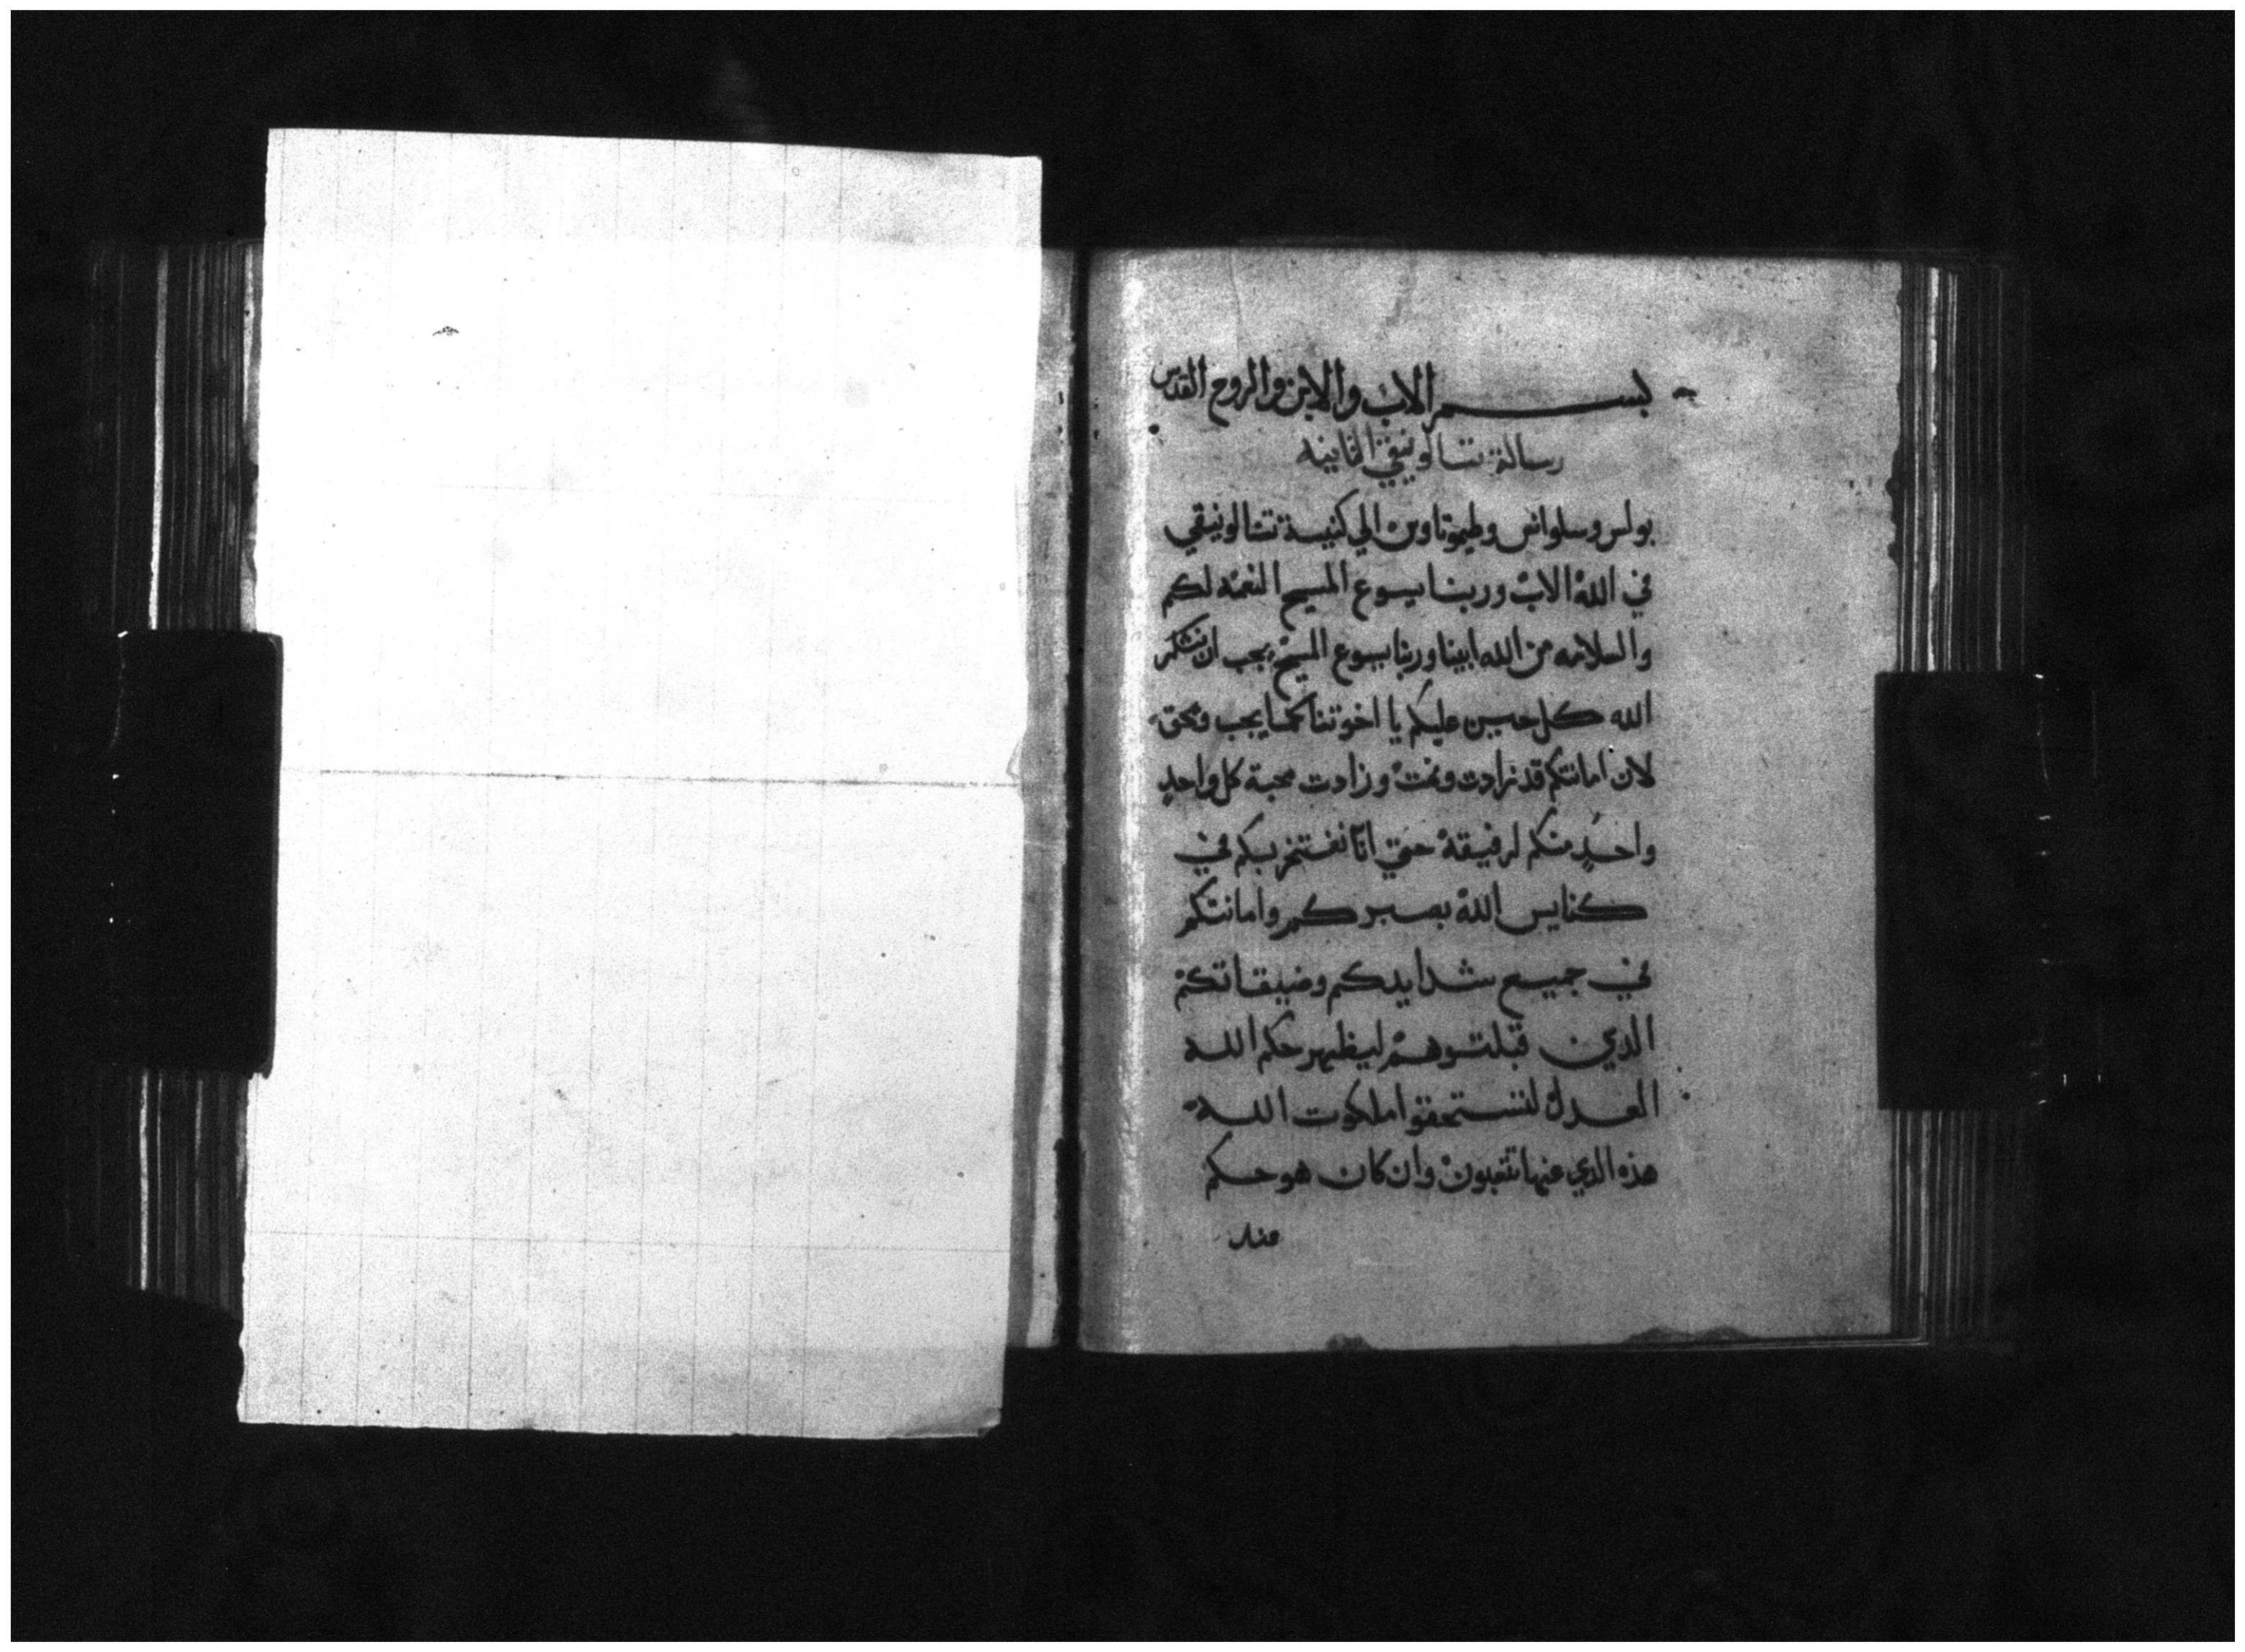 بسم الاب والابن والروح القدس
رسالة تسالونيقي الثانيه
بولس وسلوانس وطيموتاوس الي كنيسة تسالونيقي
في الله الاب وربنا يسوع المسيح النعمه لكم
والسلامه من الله ابينا وربنا يسوع المسيح يجب ان نشكر
الله كل حين عليكم يا اخوتنا كما يجب ويحق
لان امانتكم قد زادت ونمت وزادت محبة كل واحدٍ
واحدٍ منكم لرفيقه حتي انّا نفتخر بكم في
كنايس الله بصبركم وامانتكم
في جميع شدايدكم وضيقاتكم
الدين قبلتوهم ليظهر حكم الله
العدل لتستحقوا ملكوت الله
هذه الدي عنها تتعبون وان كان هو حكم
عند